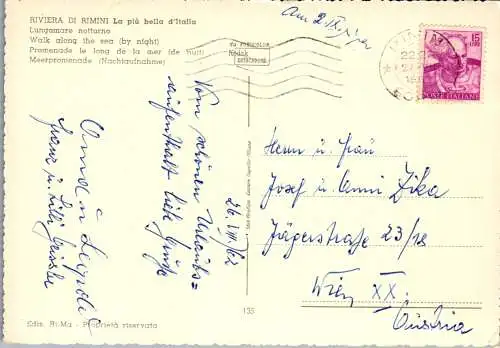 RIVIERA DI RIMINI La più bella d'Italia
Lungomare notturno
Walk along the sea (by night)
Promenade le long de la mer (de nuit)
Meerpromenade (Nachtaufnahme)
Kodak
EKTACHROME
15
POSTE ITALIANE
Vom schönen Urlaubs=
aufenthalt liebe Grüße
26. VIII. 62
Herrn u. Frau
Josef u. Anni Zika
Jägerstraße 23/18
Wien XX.
Austria
135
Ediz. Ri.Ma - Proprietà riservata